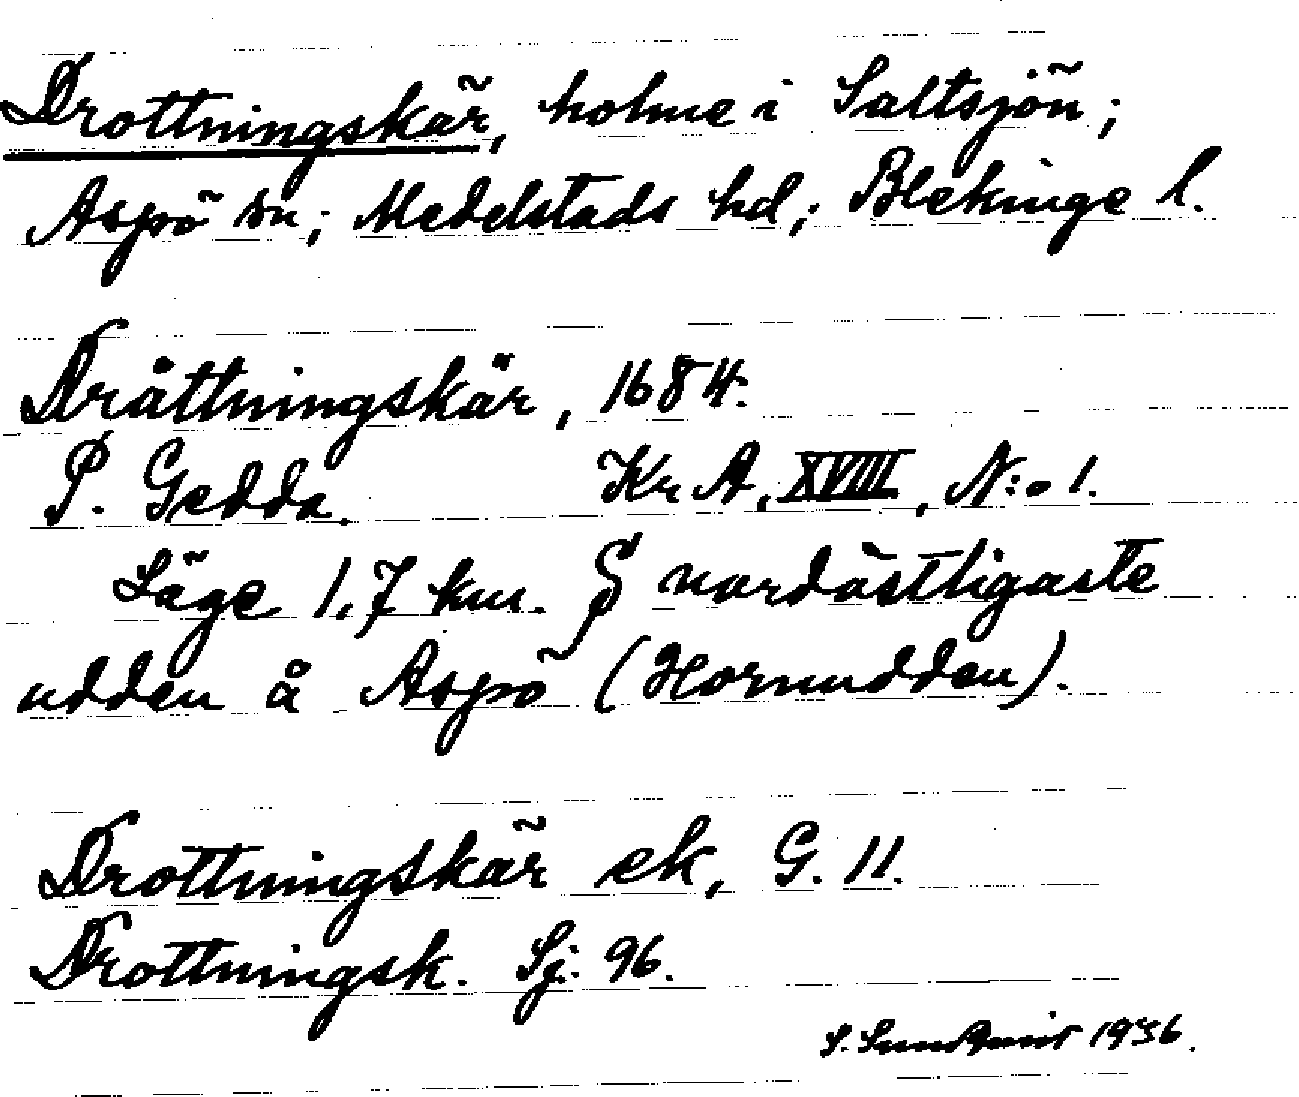 Drottningskär, holme i Saltsjön;
Aspö sn; Medelstads hd; Blekinge l.
Dråttningskär, 1684.
P. Gedda. Kr A, XVIII, N:o 1.
Läge 1,7 km. S nordöstligaste
udden å Aspö (Hornudden).
Drottningskär ek, G. 11.
Drottningsk. Sj. 96.
S. 1936.